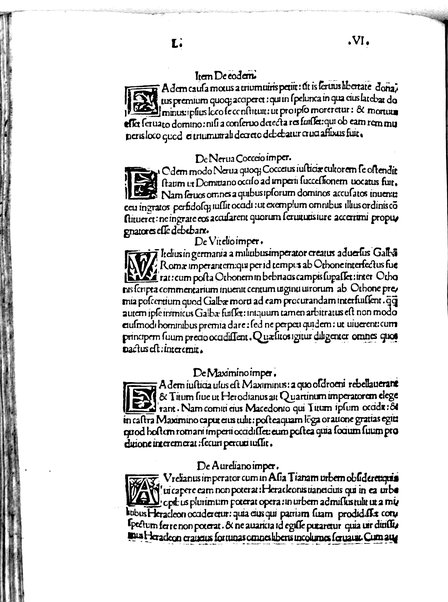 L. .VI.
Item De eodem.
EAdem causa motus a triumuiris petiit: ut is seruus libertate dona,
tus premium quoq; acciperet: qui in spelunca in qua eius latebat do
minus: ipsius loco se constituit: ut pro ipso moreretur: & mortuus
esset seruato domino: nisi a conseruo detecta res fuisset: qui ob eam rem mu
neris loco quod e triumuirali decreto debebatur cruci affixus fuit.
De Nerua Cocceio imper.
EOdem modo Nerua quoq; Cocceius iusticiæ cultorem se ostendit
statim ut Domitiano occiso ad imperii successionem uocatus fuit.
Nam seruos omnes a quibus ipsorum dominos accusatos inuenit
ceu ingratos perfidosq; iussit occidi: ut exemplum omnibus illius ordinis cō
stitueret: ne ingrate eos accusarent quorum seruitutis iure acerrimi propu,
gnatores esse debebant.
De Vitelio imper.
VItelius in germania a militibus imperator creatus aduersus Galbā
Romæ imperantem: qui per id tempus ab Othone interfectus fue
rat: cum posta Othonem in bebriacis campis supasset: inter Otho
nis scripta commentarium inuenit centum uiginti uirorum ab Othone pre,
mia poscentium quod Galbæ morti ad eam procurandam interfuissent. q̄q̄
autem ipse inimicus Galbæ fuisset: iniquum tamen arbitratus est non modo
eiusmodi hominibus premia dare: sed ne perpeti quidem: ut uiuerent: cum
principem suum precio occidissent. Quæsitos igitur diligenter omnes quos
nactus est: interemit.
De Maximino imper.
EAdem iusticia usus est Maximinus: a quo osdroeni rebellauerant
& Titum siue ut Herodianus ait Quartinum imperatorem elege
rant. Nam comiti eius Macedonio qui Titum ipsum occidit: &
in castra Maximino caput eius tulit: postquam lōga oratione gratias egit
quod hostem romani imperii occidisset: eum postea quia socium suum pro
ditione interemerat: securi percuti iussit.
De Aureliano imper.
AVrelianus imperator cum in Asia Tianam urbem obsideret: quia
ui capere eam non poterat: Heracleonis tianei cius qui in ea urbe
plurimum poterat opera: in urbem admissus tulit ut a mi
litibus Heracleon occideretur: quia eius qui patriam suam prodidisset con
spectum ferre non poterat. & ne auaricia id egisse putaretur quia uir ditissi
mus Heracleon erat: eius fortunas omnes liberis incolumes seruauit. Cum aut